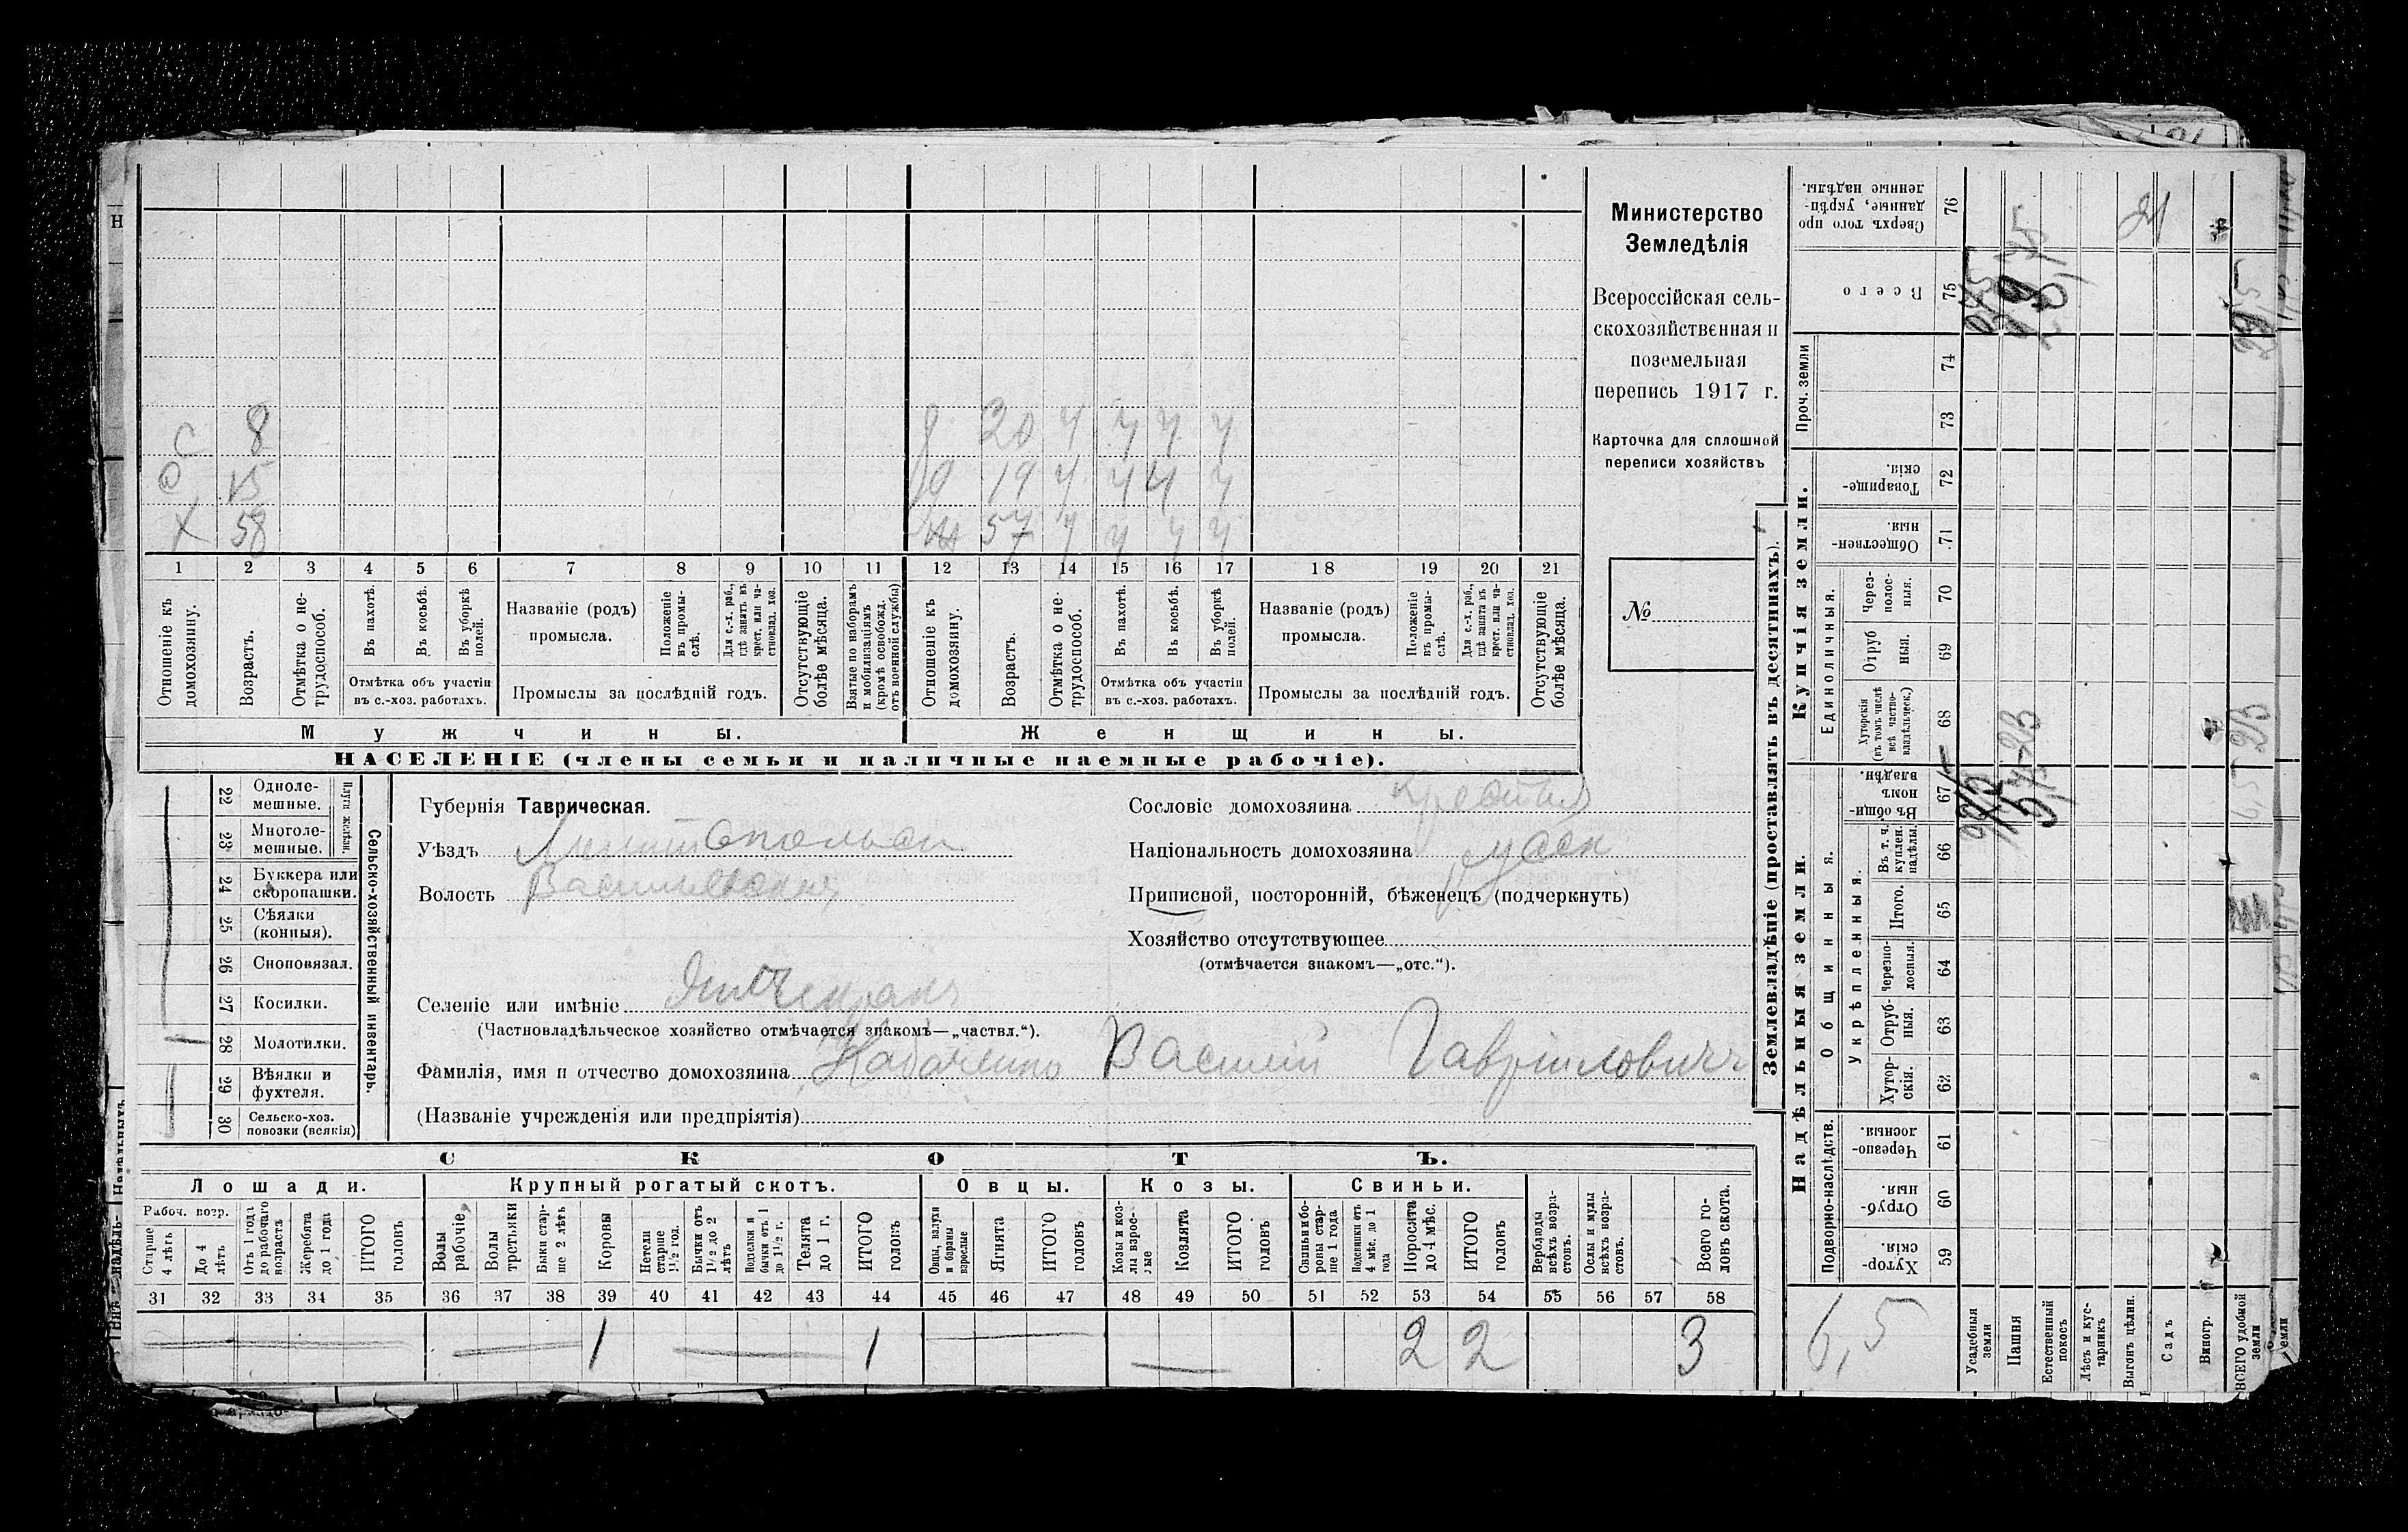 Министерство
Земледѣлія
Всероссійская сель-
скохозяйственная и
поземельная
перепись 1917 г.
Карточка для сплошной
переписи хозяйствъ
№
С 8
15
Х 58
20 ч ч ч ч
19 ч ч ч ч
57 ч ч ч ч
1 2 3 4 5 6 7 8 9 10 11 12 13 14 15 16 17 18 19 20 21
Отношеніе къ домохозяину.
Возрастъ.
Отмѣтка о не-трудоспособ.
Въ пахотѣ.
Въ косьбѣ.
Въ уборкѣ полей.
Отмѣтка объ участіи
въ с.-хоз. работахъ.
Названіе (родъ)
промысла.
Положеніе въ промы-слѣ.
Для с.-х. раб., гдѣ занятъ въ крест. или ча-стновлад. хоз.
Промыслы за послѣдній годъ.
Отсутствующіе болѣе мѣсяца.
Взятые по наборамъ и мобилизаціямъ (кромѣ освобожд. отъ военной службы)
Отношеніе къ домохозяину.
Возрастъ.
Отмѣтка о не-трудоспособ.
Въ пахотѣ.
Въ косьбѣ.
Въ уборкѣ полей.
Отмѣтка объ участіи
въ с.-хоз. работахъ.
Названіе (родъ)
промысла.
Положеніе въ промы-слѣ.
Для с.-х. раб., гдѣ занята въ крест. или ча-стновлад. хоз.
Промыслы за послѣдній годъ.
Отсутствующіе болѣе мѣсяца.
Мужчины.
Женщины.
НАСЕЛЕНІЕ (члены семьи и наличные наемные рабочіе).
22 Одноле-мешные.
23 Многоле-мешные.
Плуги желѣзн.
24 Буккера или скоропашки.
25 Сѣялки (конныя).
26 Сноповязал.
27 Косилки.
28 Молотилки.
29 Вѣялки и фухтеля.
30 Сельско-хоз. повозки (всякія)
Сельско-хозяйственный инвентарь.
Губернія Таврическая.
Уѣздъ Мелитопольск
Волость Васильевская
Селеніе или имѣніе
(Частновладѣльческое хозяйство отмѣчается знакомъ—„частвл.“).
Фамилія, имя и отчество домохозяина Василій Гавриловичъ
(Названіе учрежденія или предпріятія)
Сословіе домохозяина
Національность домохозяина русск
Приписной, посторонній, бѣженецъ (подчеркнуть)
Хозяйство отсутствующее
(отмѣчается знакомъ—„отс.“).
СКОТЪ.
Лошади. Крупный рогатый скотъ. Овцы. Козы. Свиньи.
Рабоч. возр.
Старше 4 лѣтъ
До 4 лѣтъ
Отъ 1 года до рабочаго возраста
Жеребята до 1 года
ИТОГО головъ
Волы рабочіе
Волы третьяки
Быки стар-ше 2 лѣтъ
Коровы
Нетели старше 1½ год.
Бычки отъ 1½ до 2 лѣтъ
Подтелки и бычки отъ 1 до 1½ г.
Телята до 1 г.
ИТОГО головъ
Овцы, валухи и бараны взрослые
Ягнята
ИТОГО головъ
Козы и коз-лы взрос-лые
Козлята
ИТОГО головъ
Свиньи и бо-ровы стар-ше 1 года
Подсвинки отъ 4 мѣс. до 1 года
Поросята до 4 мѣс.
ИТОГО головъ
Верблюды всѣхъ возра-стовъ.
Ослы и мулы всѣхъ возра-стовъ.
Всего го-ловъ скота.
31 32 33 34 35 36 37 38 39 40 41 42 43 44 45 46 47 48 49 50 51 52 53 54 55 56 57 58
1 1 2 2 3
Землевладѣніе (проставлять въ десятинахъ).
Купчія земли.
Надѣльныя земли.
Сверхъ того про данные, укрѣп-ленные надѣлы. 76
Всего 75
Проч. земли 74 73
Товарище-скія. 72
Обществен-ныя. 71
Единоличныя.
Через-полос-ныя. 70
Отруб ныя. 69
Хуторскія (въ томъ числѣ всѣ частно-владѣльческ.) 68
Общинныя.
Въ общин-номъ владѣн. 67
Въ т. ч. куплен. надѣлы. 66
Укрѣпленныя.
Итого. 65
Черезпо-лосныя. 64
Отруб-ныя. 63
Хутор-скія. 62
Подворно-наслѣдств.
Черезпо-лосныя. 61
Отруб-ныя. 60
Хутор-скія. 59
6,5
Усадебныя земли
Пашня
Естественный покосъ
Лѣсъ и кус-тарникъ
Выгонъ цѣлин.
Садъ
Виногр.
ВСЕГО удобной земли